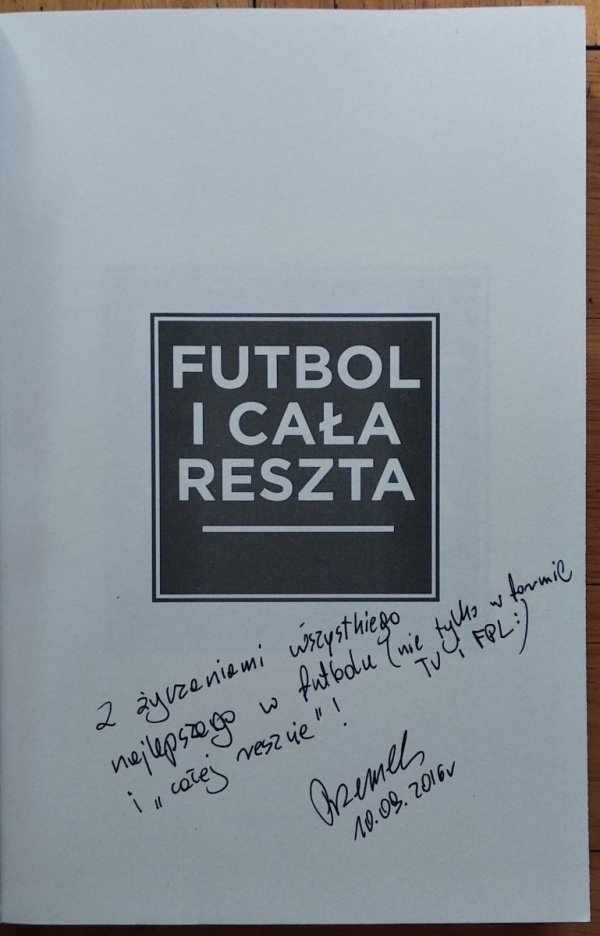 FUTBOL
I CAŁA
RESZTA
Z życzeniami wszystkiego
najlepszego w futbolu (nie tylko w formie
TV i FPL:)
i „całej reszcie"!
Przemek
10.09.2016r